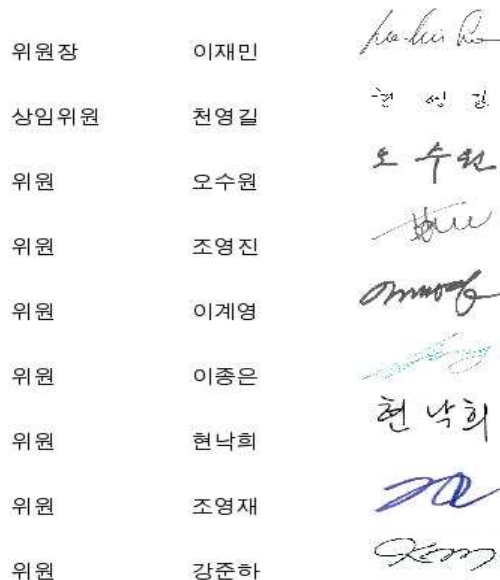 위원장 이재민
상임위원 천영길 천 영 길
위원 오수원 오 수 원
위원 조영진
위원 이계영
위원 이종은
위원 현낙희 현 낙 희
위원 조영재
위원 강준하